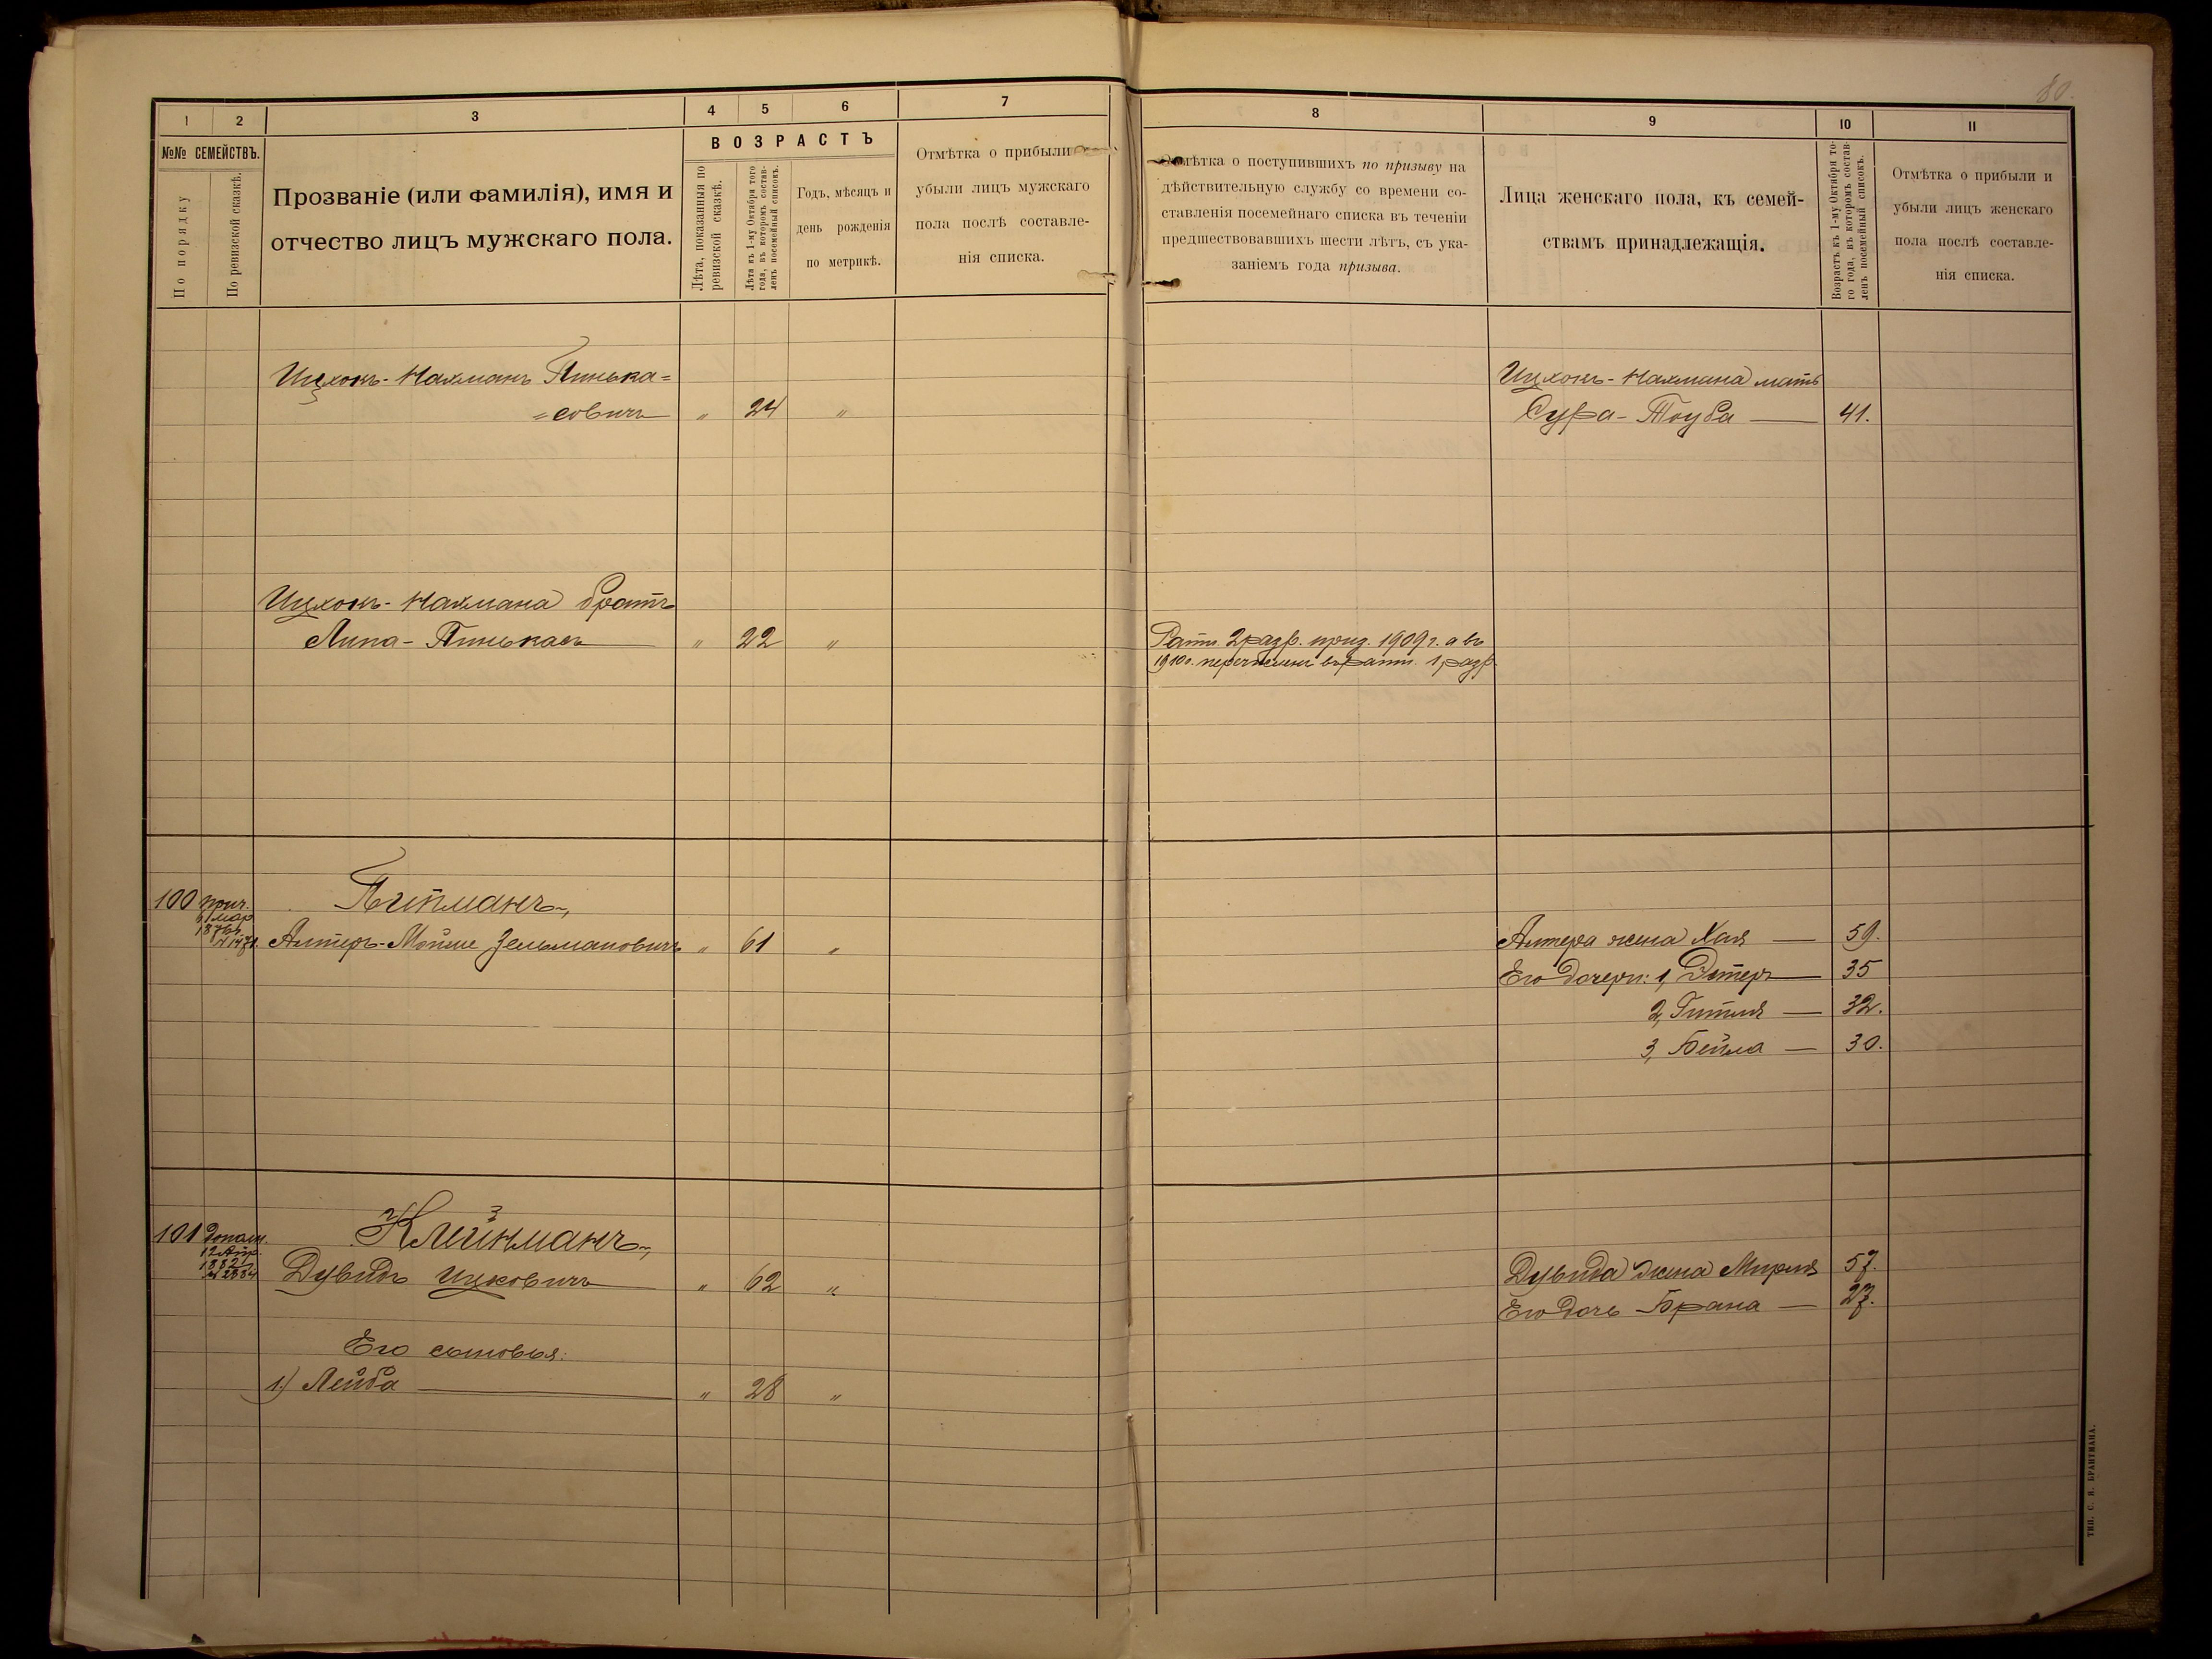 80.
1 2 3 4 5 6 7
№№ СЕМЕЙСТВЪ.
По порядку
По ревизской сказкѣ.
Прозваніе (или фамилія), имя и
отчество лицъ мужскаго пола.
ВОЗРАСТЪ
Лѣта, показанныя по
ревизской сказкѣ.
Лѣта къ 1-му Октября того
года, въ которомъ состав-
ленъ посемейный списокъ.
Годъ, мѣсяцъ и
день рожденія
по метрикѣ.
Отмѣтка о прибыли
убыли лицъ мужскаго
пола послѣ составле-
нія списка.
8 9 10 11
Отмѣтка о поступившихъ по призыву на
дѣйствительную службу со времени со-
ставленія посемейнаго списка въ теченіи
предшествовавшихъ шести лѣтъ, съ ука-
заніемъ года призыва.
Лица женскаго пола, къ семей-
ствамъ принадлежащія.
Возрастъ къ 1-му Октября то-
го года, въ которомъ состав-
ленъ посемейный списокъ.
Отмѣтка о прибыли и
убыли лицъ женскаго
пола послѣ составле-
нія списка.
Ицхокъ-Нахманъ Пинька=
=совичъ " 24 "
Ицхокъ-Нахмана мать
Сура-Тоуба 41.
Ицхокъ-Нахмана братъ
Липа-Пинькасъ " 22 "
Ратн. 2 разр. приз. 1909 г. а въ
1910 г. перечисленъ въ ратн. 1 разр.
100 прич. Питманъ,
мар.
Алтеръ-Мойше Зельмановичъ " 61 "
Алтера жена Хая 59.
Его дочери: 1, Эстеръ 35
2, Гитля 32.
3, Бейла 30.
101 допол. Клейнманъ, 3
12 Апр.
1882 г.
№ 2884 Дувидъ Ицковичъ " 62 "
Дувида жена Мирля 57.
Его дочь Брана 27.
Его сыновья:
1.) Лейба " 28 "
ТИП. С. Я. БРАНТМАНА.